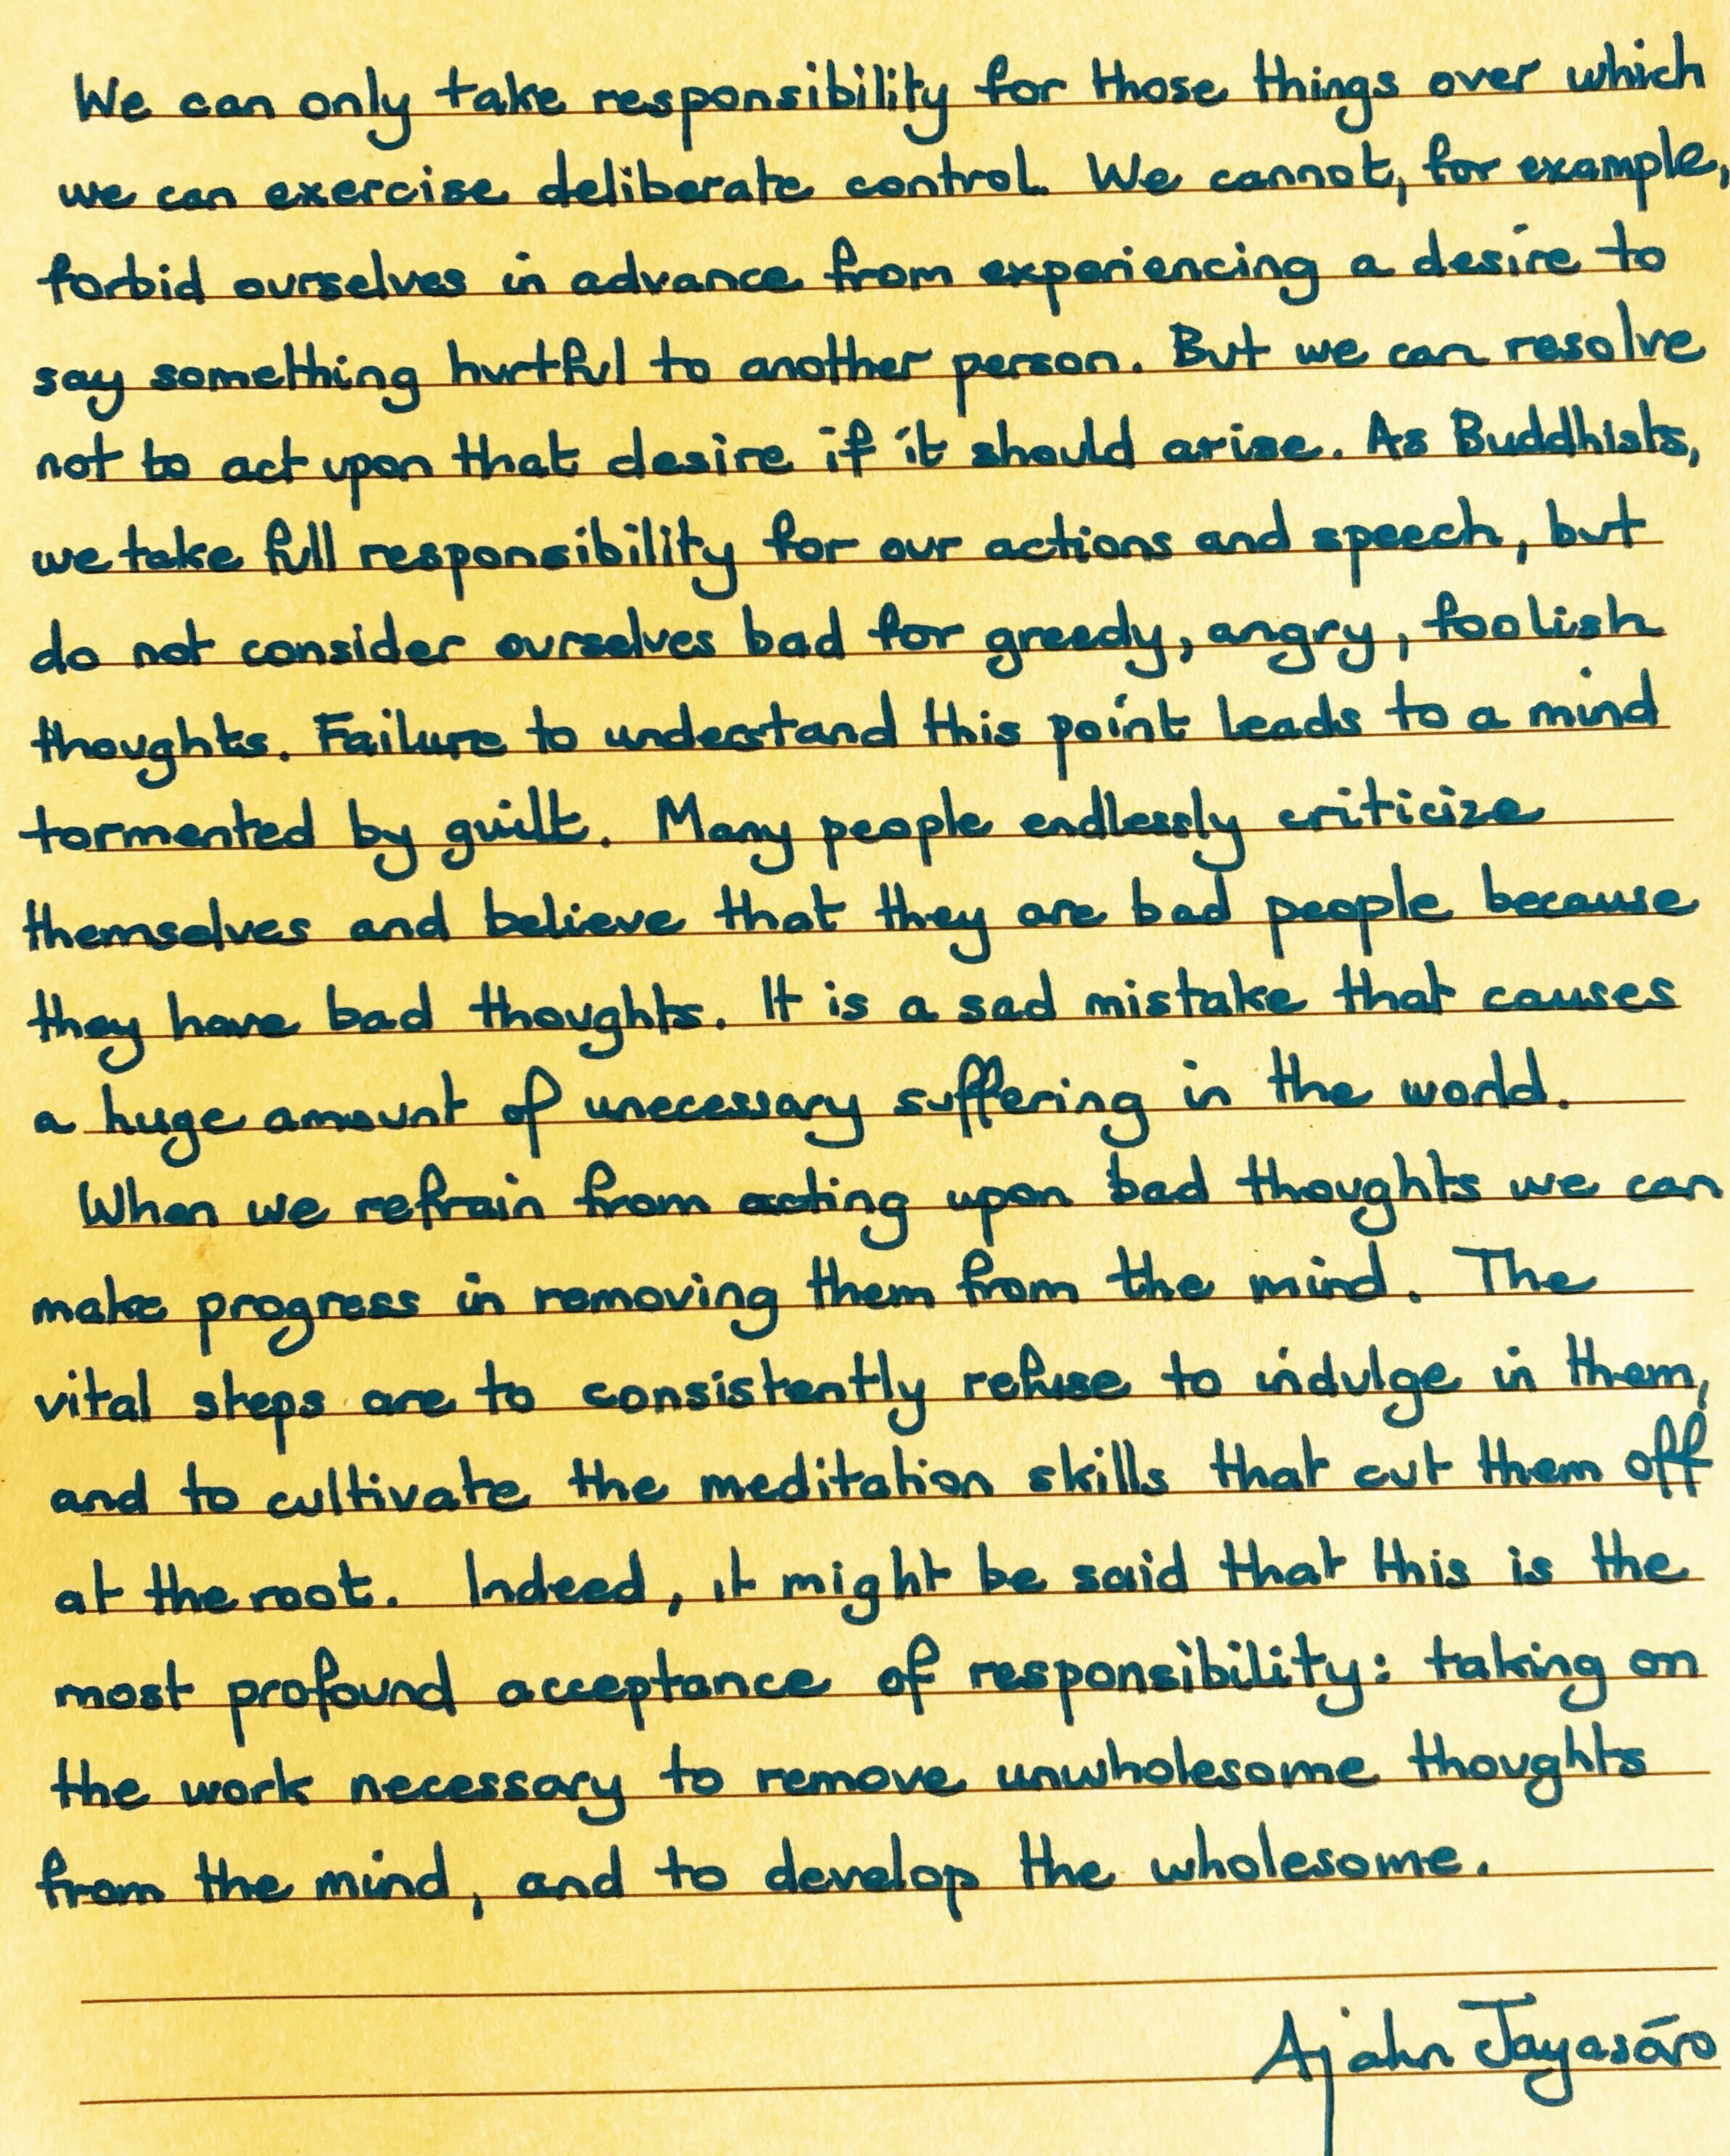 We can only take responsibility for those things over which
we can exercise deliberate control. We cannot, for example,
forbid ourselves in advance from experiencing a desire to
say something hurtful to another person. But we can resolve
not to act upon that desire if it should arise. As Buddhists,
we take full responsibility for our actions and speech, but
do not consider ourselves bad for greedy, angry, foolish
thoughts. Failure to understand this point leads to a mind
tormented by guilt. Many people endlessly criticize
themselves and believe that they are bad people because
they have bad thoughts. It is a sad mistake that causes
a huge amount of unecessary suffering in the world.
When we refrain from acting upon bad thoughts we can
make progress in removing them from the mind. The
vital steps are to consistently refuse to indulge in them,
and to cultivate the meditation skills that cut them off
at the root. Indeed, it might be said that this is the
most profound acceptance of responsibility: taking on
the work necessary to remove unwholesome thoughts
from the mind, and to develop the wholesome.
Ajahn Jayasāro